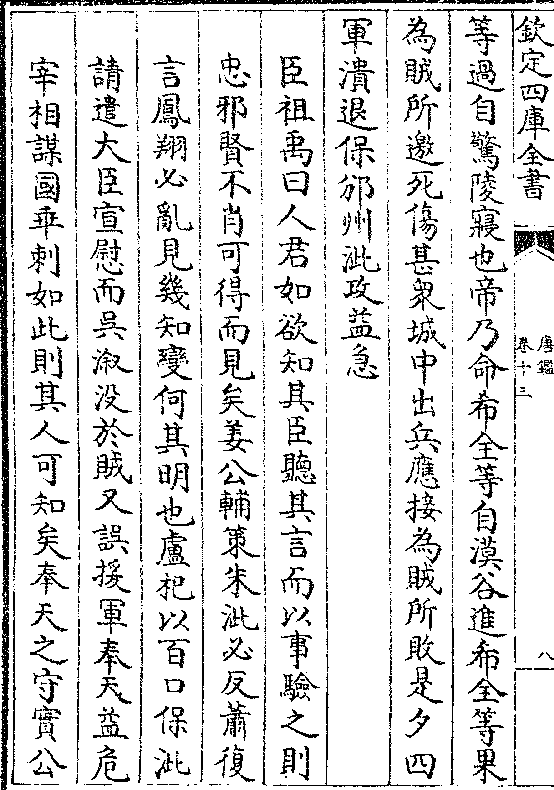 欽定四庫全書
唐鑑
卷十三
八
等過自驚陵寢也帝乃命希全等自漠谷進希全等果
為賊所邀死傷甚衆城中出兵應接為賊所敗是夕四
軍潰退保邠州泚攻益急
臣祖禹曰人君如欲知其臣聽其言而以事驗之則
忠邪賢不肖可得而見矣姜公輔策朱泚必反蕭復
言鳳翔必亂見幾知變何其明也盧杞以百口保泚
請遣大臣宣慰而吳溆没於賊又誤援軍奉天益危
宰相謀國乖刺如此則其人可知矣奉天之守實公